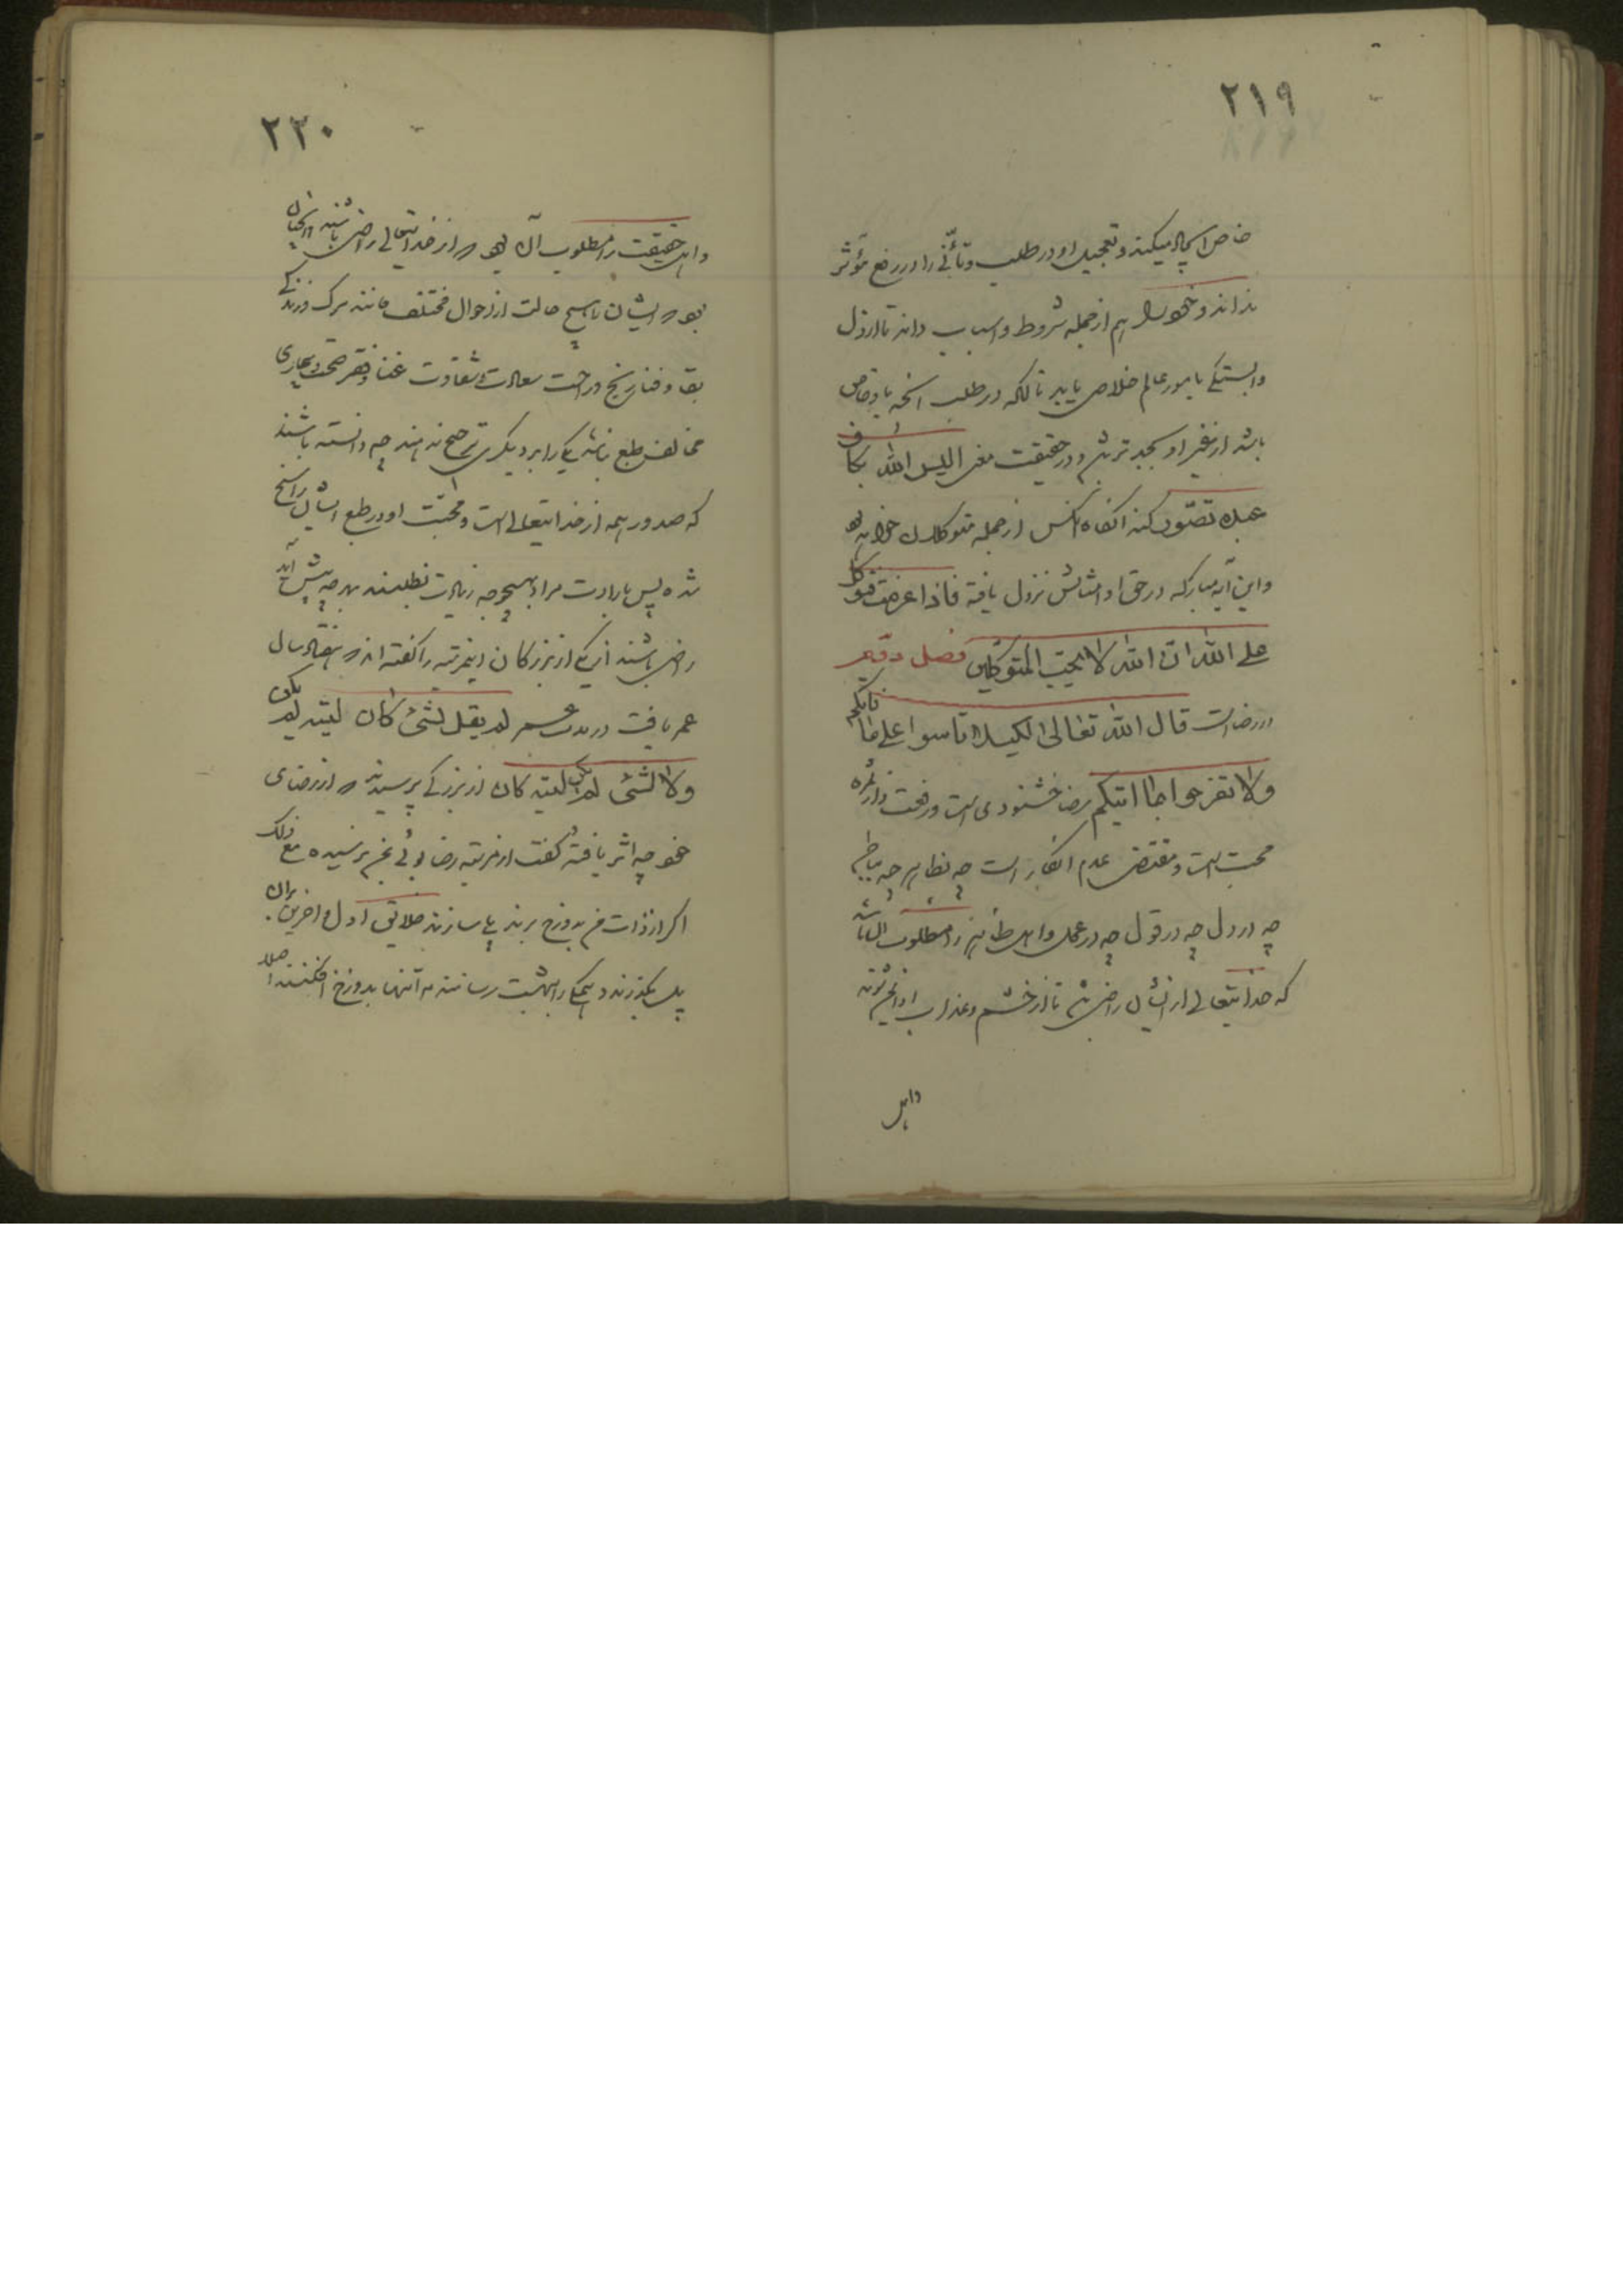 ۲۱۹
خاص ایجاد میکند و تعجیل او در طلب و تأنّی را در رفع مؤثر
نداند و خود را هم از جمله شروط و اسباب داند تا از ذل
وابستگی بامور عالم خلاص یابد تا آنکه در طلب آنچه باو خاص
باشد از غیر او بجدتر شود و در حقیقت معنی الیس الله بکاف
عبده تصوّر کند آنگاه آنکس از جمله متوکلان خواهد بود
و این آیه مبارکه در حق او و امثالش نزول یافته فاذا عزمت فتوکل
علی الله ان الله لا یحب المتوکلین فصل دویم
در رضا است قال الله تعالی لکیلا تأسوا علی ما فاتکم
ولا تفرحوا بما اتیکم رضا خشنودی است و رفعت و از ثمره
محبت است و مقتضی عدم انکار است چه بظاهر چه بباطن
چه در دل چه در قول چه در عمل و اهل ظاهر را مطلوب آن باشد
که خدایتعالی از ایشان راضی شود تا از خشم و عذاب او ایمن شوند
واهل
۲۲۰
واهل حقیقت را مطلوب آن بود که از خدایتعالی راضی باشند و آنچنان
بود که ایشان را هیچ حالت از احوال مختلف مانند مرگ و زندگی
بقا و فنا رنج و راحت سعادت و شقاوت غنا و فقر صحت و بیماری
مخالف طبع نباشد یکی را بر دیگری ترجیح ندهند چه دانسته باشند
که صدور همه از خدایتعالی است و محبّت او در طبع ایشان راسخ
شده پس بارادت مراد بهیچوجه زیادت نطلبند بهر چه پیش آید
راضی باشند از یکی از بزرگان اینمرتبه را گفته‌اند که هفتاد سال
عمر یافت در مدت عمر لم یقل لشیٔ کان لیته لم یکن
ولا لشیٔ لم یکن لیته کان از بزرگی پرسیدند که از رضای
خود چه اثر یافتهٔ گفت از مرتبه رضا بوئی بمن نرسیده مع ذلک
اگر از ذات من بدوزخ برند پلی سازند خلایق اول و آخرین بران
پل بگذرند و همه را ببهشت رسانند مرا تنها بدوزخ افکنند اصلا